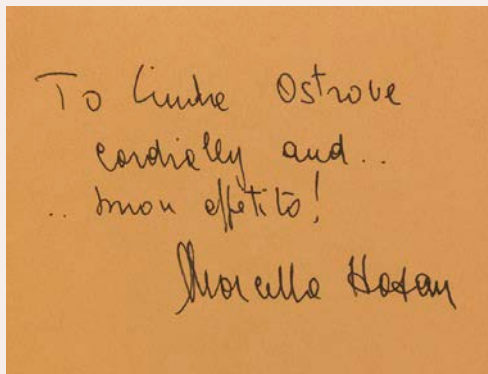 To Linda Ostrove
cordially and..
.. buon appetito!
Marcella Hazan